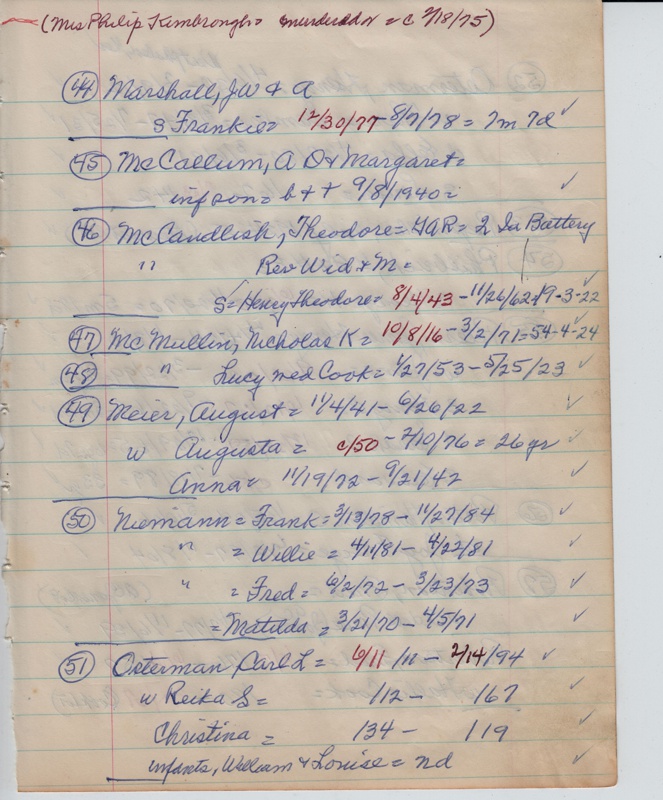 (Mrs Philip Kimbrough = murdered = c 2/18/75)
44 Marshall, JW & A
s Frankie = 12/30/77 - 8/7/78 = 7m 7d ✓
45 McCallum, A D & Margaret =
inf son = b + + 9/8/1940 = ✓
46 McCandlish, Theodore = GAR = 2 Battery
" Rev Wid & M =
S = Henry Theodore = 8/4/43 - 11/26/62 = 19-3-22 ✓
47 McMullin, Nicholas K = 10/8/16 - 3/2/71 = 54-4-24 ✓
48 " - Lucy med Cook = 1/27/53 - 5/25/23 ✓
49 Meier, August = 11/4/41 - 6/26/22 ✓
w Augusta = c/50 - 7/10/76 = 26 yr ✓
Anna = 11/19/72 - 9/21/42 ✓
50 Niemann = Frank = 3/13/78 - 11/27/84 ✓
" = Willie = 4/11/81 - 4/22/81 ✓
" = Fred = 6/2/72 - 3/23/73 ✓
= Matilda = 3/21/70 - 4/5/71 ✓
51 Osterman Carl L = 6/11/11 - 2/14/94 ✓
w Reika S = /12 - 167 ✓
Christina = 134 - 119 ✓
infants, William & Louise = nd ✓